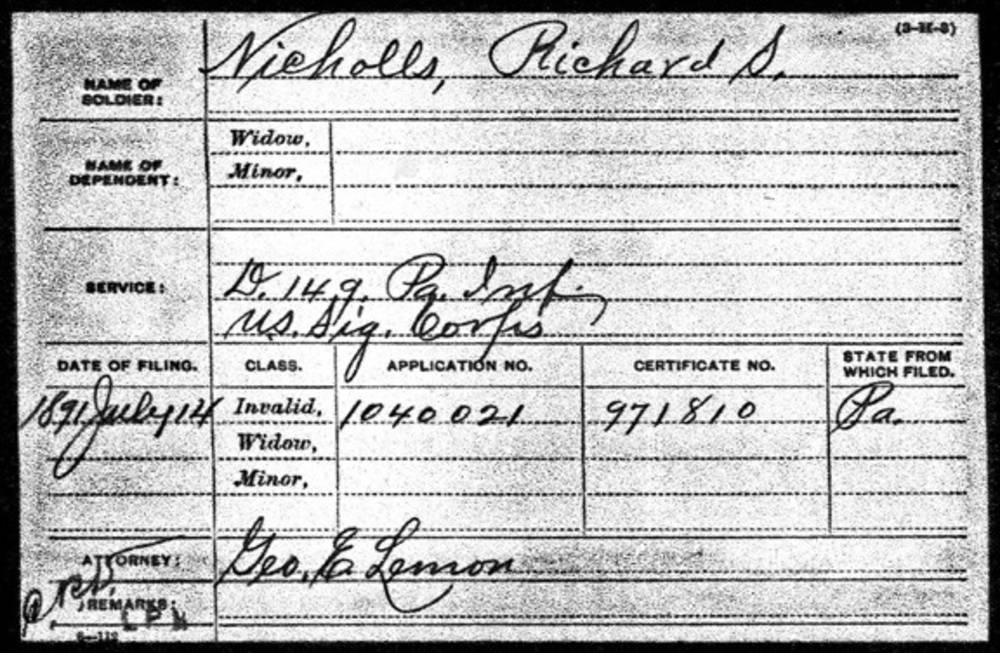 (3-H-3)
NAME OF SOLDIER: Nicholls, Richard S.
NAME OF DEPENDENT: Widow,
Minor,
SERVICE: D. 149. Pa. Inf.
U.S. Sig. Corps
DATE OF FILING. CLASS. APPLICATION NO. CERTIFICATE NO. STATE FROM WHICH FILED.
1891 July 14 Invalid, 1040021 971810 Pa.
Widow,
Minor,
ATTORNEY: Geo. E. Lemon
REMARKS:
6—112